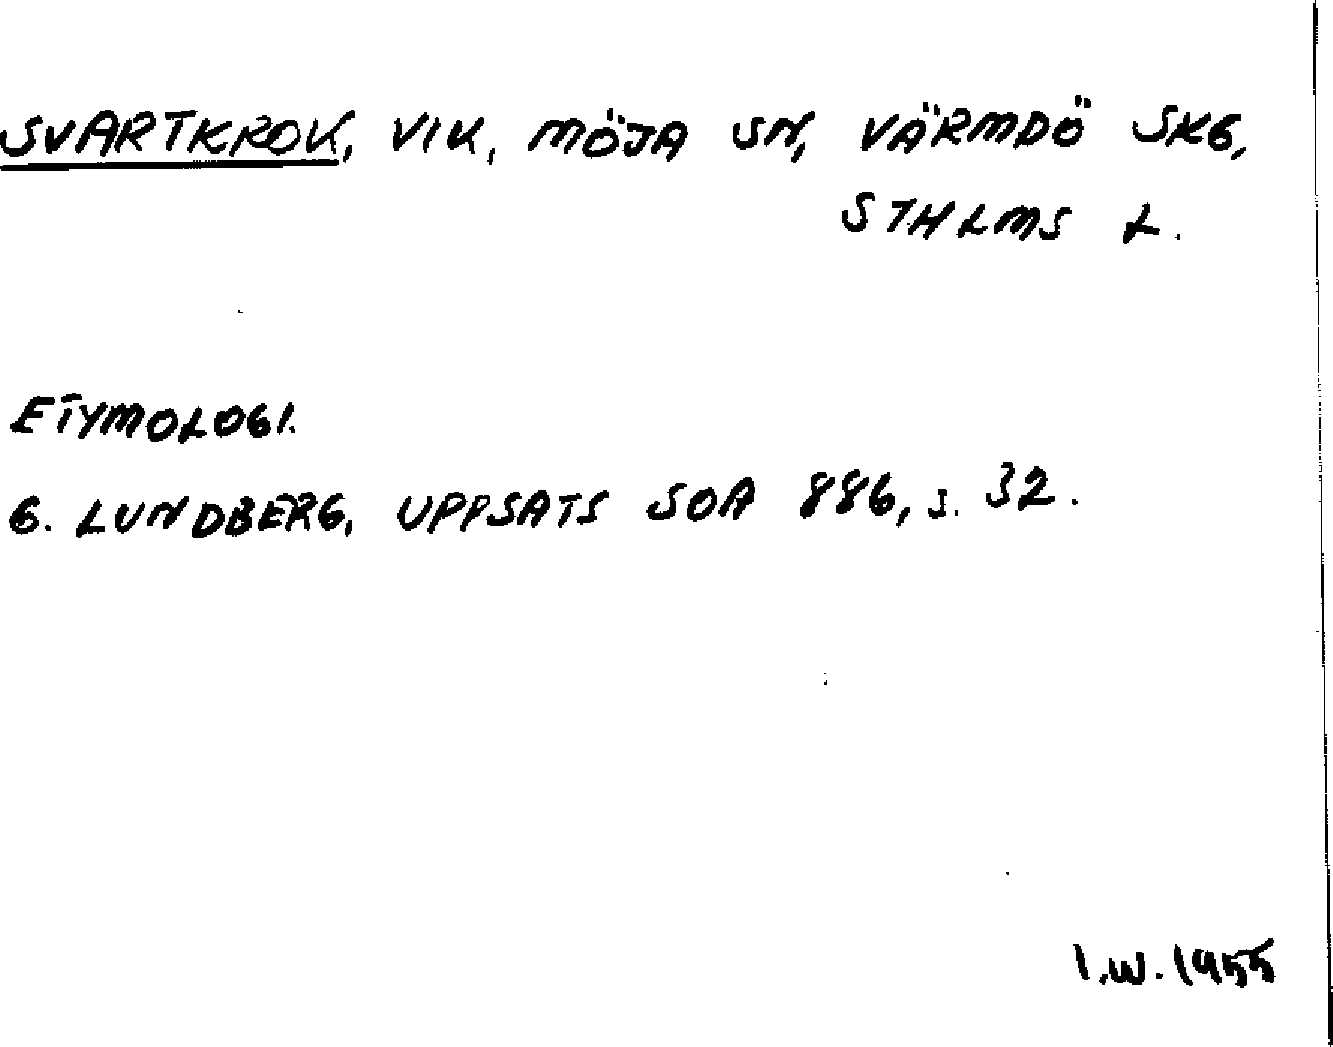 SVARTKROK, VIK, MÖJA SN, VÄRMDÖ SKG,
STHLMS L.
ETYMOLOGI.
G. LUNDBERG, UPPSATS SOA 886, s. 32.
I.W. 1955